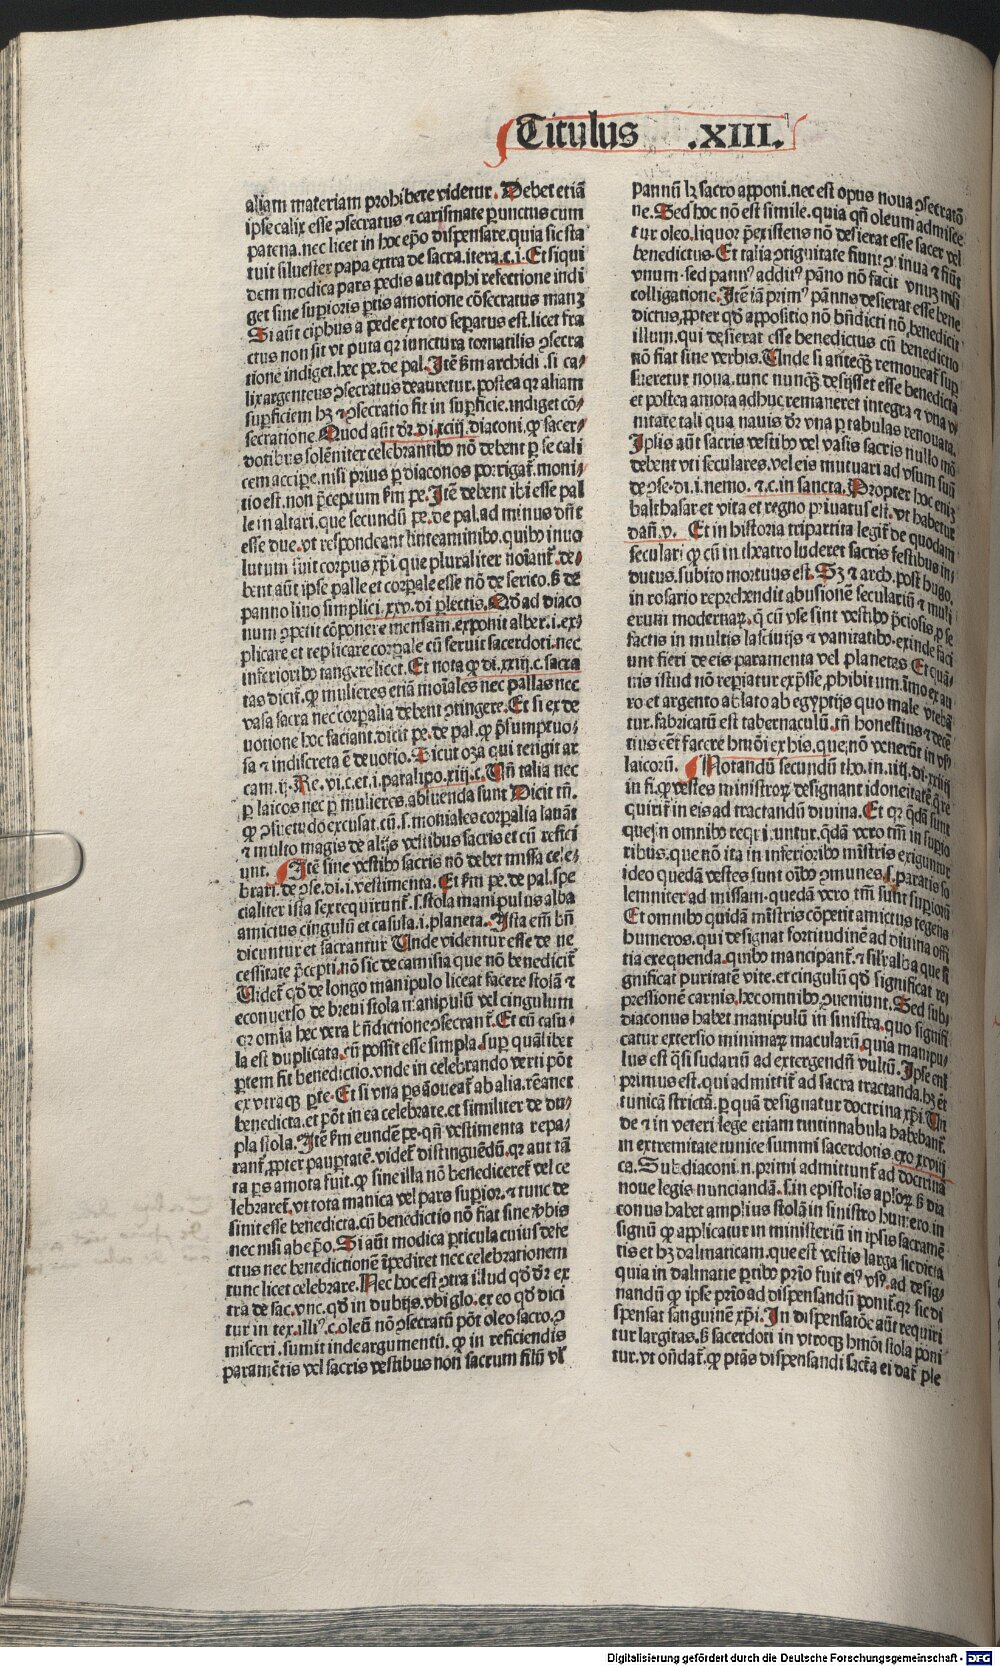 Titulus .XIII.
aliam materiam prohibere videtur. Debet etiã
ipse calix esse ꝯsecratus ⁊ carismate ꝑunctus cum
patena. nec licet in hoc epõ dispensare. quia sic sta
tuit siluester papa extra de sacra. itera. c. i. Et si qui
dem modica pars pedis aut ciphi refectione indi
get sine suꝑioris ꝑtis amotione cõsecratus manꝫ
Si aũt ciphus a pede ex toto seꝑatus est. licet fra
ctus non sit vt puta qr iunctura tornatilis ꝯsecra
tione indiget. hec pe. de pal. Itẽ ẜm archidi. si ca⸗
lix argenteus ꝯsecratus deauretur. postea qr aliam
suꝑficiem hꝫ ⁊ ꝯsecratio fit in suꝑficie. indiget cõ⸗
secratione. Quod aũt dr̃. di. xciij. diaconi. ꝙ sacer⸗
dotibus solẽniter celebrantibꝰ nõ debent ꝑ se cali
cem accipe. nisi prius ꝑ diaconos porrigat̃. moni⸗
tio est. non p̃ceptum ẜm pe. Itẽ debent ibi esse pal
le in altari. que secundũ pe. de pal. ad minus dñt
esse due. vt respondeant linteaminibꝰ. quibꝰ inuo
lutum fuit corpus xp̃i. que pluraliter noĩant̃. de⸗
bent aũt ipse palle et corꝑale esse nõ de serico. ẜ de
panno lino simplici. xxv. di ꝑlectis. Qđ ad diaco
num ꝯpetit cõponere mensam. exponit alber. i. ex⸗
plicare et replicare corꝑale cũ seruit sacerdoti. nec
inferioribꝰ tangere licet. Et nota ꝙ di. xxiij. c. sacra
tas dicit̃. ꝙ mulieres etiã moĩales nec pallas nec
vasa sacra nec corꝑalia debent ꝯtingere. Et si ex de
uotione hoc faciant. dicit pe. de pal. ꝙ p̃sumptuo⸗
sa ⁊ indiscreta ẽ deuotio. Sicut oza qui tetigit ar
cam. ij. Re. vi. c. et. i. paralipo. xiij. c. Uñ talia nec
ꝑ laicos nec ꝑ mulieres. abluenda sunt Dicit tñ.
ꝙ ꝯsuetudo excusat. cũ. s. moniales corꝑalia lauãt
⁊ multo magis de alijs vestibus sacris et cũ refici
unt. Itẽ sine vestibꝰ sacris nõ debet missa cele⸗
brari. de ꝯse. di. i. vestimenta. Et ẜm pe. de pal. spe
cialiter ista sex requirunt̃. s. stola manipulus alba
amictus cingulũ et casula. i. planeta. Ista em̃ bñ
dicuntur et sacrantur Unde videntur esse de ne
cessitate p̃cepti. nõ sic de camisia que nõ benedicit̃
Uidet̃ qđ de longo manipulo liceat facere stolã ⁊
econuerso de breui stola manipulũ vel cingulum
qr om̃ia hec vera bñdictione ꝯsecrant̃. Et cũ casu⸗
la est duplicata. cũ possit esse simpla. suꝑ quãlibet
ꝑtem fit benedictio. vnde in celebrando verti põt
ex vtraqꝫ ꝑte. Et si vna ps amoueat̃ ab alia. rẽanet
benedicta. et põt in ea celebrare. et similiter de du⸗
pla stola. Itẽ ẜm eundẽ pe. qñ vestimenta repa⸗
rant̃. ꝓpter pauꝑtatẽ. videt̃ distinguẽdũ. qr aut tã
ta ps amota fuit. ꝙ sine illa nõ benediceret̃ vel ce
lebraret̃. vt tota manica vel pars suꝑior. ⁊ tunc de
sinit esse benedicta. cũ benedictio nõ fiat sine ṽbis
nec nisi ab epõ. Si aũt modica ꝑticula cuius defe
ctus nec benedictionẽ ĩpediret nec celebrationem
tunc licet celebrare. Nec hoc est ꝯtra illud qđ dr̃ ex
tra de sac. vnc. qđ in dubijs. vbi glo. ex eo qđ dici
tur in tex. illiꝰ. c. oleũ nõ ꝯsecratũ põt oleo sacro. ꝯ
misceri. sumit inde argumentũ. ꝙ in reficiendis
paramẽtis vel sacris vestibus non sacrum filũ vl̃
pannũ lꝫ sacro apponi. nec est opus noua ꝯsecratõ
ne. Sed hoc nõ est simile. quia qñ oleum admisce
tur oleo. liquor p̃existens nõ desierat esse sacer vel
benedictus. Et talia ꝯtiguitate fiunt ꝯtinua ⁊ fiũt
vnum. sed pannꝰ additꝰ pãno nõ facit vnuꝫ nisi
colligatione. Itẽ iã primꝰ pãnus desierat esse bene
dictus, ꝓpter qđ appositio nõ bñdicti nõ benedicit
illum. qui desierat esse benedictus cũ benedictio
nõ fiat sine verbis. Unde si anteqꝫ remoueat̃ suꝑ
sueretur noua. tunc nunqꝫ desijsset esse benedicta
et postea amota adhuc remaneret integra ⁊ vna v
nitate tali qua nauis dr̃ vna ꝑ tabulas renouata.
Ipsis aũt sacris vestibꝰ vel vasis sacris nullo mõ
debent vti seculares. vel eis mutuari ad vsum suũ
de ꝯse. di. i. nemo. ⁊. c. in sancta. Propter hoc eniꝫ
balthasar et vita et regno priuatus est. vt habetur
dañ. v. Et in historia tripartita legit̃ de quodam
seculari ꝙ cũ in theatro luderet sacris festibus in⸗
dutus. subito mortuus est. Sꝫ ⁊ arch. post hugo.
in rosario reprehendit abusionẽ seculariũ ⁊ muli
erum modernaꝝ. ꝙ cũ vse sint vestibꝰ p̃ciosis. ꝑ se
factis in multis lasciuijs ⁊ vanitatibꝰ. exinde faci
unt fieri de eis paramenta vel planetas Et quã⸗
uis istud nõ reꝑiatur exp̃sse, ꝓhibitum. ĩmo ex au
ro et argento ablato ab egyptijs quo male vtebã
tur. fabricatũ est tabernaculũ. tñ honestius ⁊ decẽ
tius eẽt facere hmõi ex his. que. nõ venerũt in vsũ
laicorũ. Notandũ secundũ tho. in. iiij. di. xxiiij
in fi. ꝙ vestes ministroꝝ designant idoneitatẽ q̃ re
quirit̃ in eis ad tractandũ diuina. Et qr qđã sunt
que in omnibꝰ requiruntur. qđã vero tm̃ in suꝑio
ribus. que nõ ita in inferioribꝰ mĩstris exiguntur
ideo quedã vestes sunt oĩbꝰ ꝯmunes. s. paratis so
lemniter ad missam. quedã vero tm̃ sunt suꝑiorũ
Et omnibꝰ quidã mĩstris cõpetit amictus tegens
humeros. qui designat fortitudinẽ ad diuina offi
tia exequenda. quibꝰ mancipant̃. ⁊ silr̃ alba que si
gnificat puritatẽ vite. et cingulũ qđ significat rep
pressionẽ carnis. hec omnibꝰ ꝯueniunt. Sed sub
diaconus habet manipulũ in sinistra. quo signifi
catur extersio minimaꝝ macularũ. quia manipu⸗
lus est q̃si sudariũ ad extergendũ vultũ. Ipse eni
primus est. qui admittit̃ ad sacra tractanda. hꝫ ẽt
tunicã strictã. ꝑ quã designatur doctrina xp̃i. Un
de ⁊ in veteri lege etiam tintinnabula habebant̃.
in extremitate tunice summi sacerdotis. exo. xxviij
ca. Subdiaconi. n. primi admittunt̃ ad doctrinã
noue legis nunciandã. s. in epistolis apl̃oꝝ. ẜ dia
conus habet amplius stolã in sinistro humero. in
signũ ꝙ applicatur in ministeriũ in ipsis sacramẽ
tis et hꝫ dalmaticam. que est vestis larga sic dicta
quia in dalmatie ꝑtibꝰ prĩo fuit eiꝰ vsꝰ. ad desig⸗
nandũ ꝙ ipse prĩo ad dispensandũ ponit̃. qr sic di
spensat sanguinẽ xp̃i. In dispensatõe aũt requiri
tur largitas. ẜ sacerdoti in vtroqꝫ hmõi stola poni
tur. vt oñdat̃. ꝙ ptãs dispensandi sacr̃a ei dat̃ ple
Digitalisierung gefördert durch die Deutsche Forschungsgemeinschaft - DFG